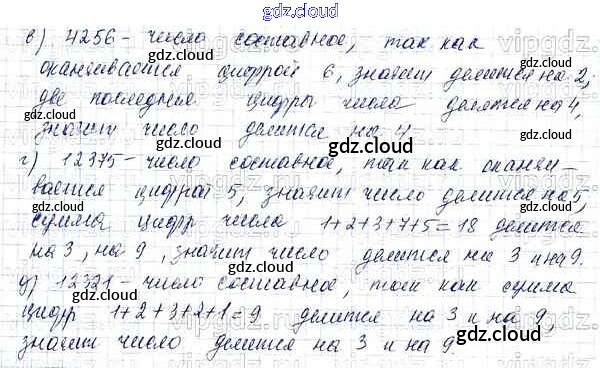 gdz.cloud
в) 4256 - число составное, так как
оканчивается цифрой 6, значит делится на 2,
две последние цифры числа делятся на 4,
значит число делится на 4.
г) 12375 - число составное, так как оканчи-
вается цифрой 5, значит число делится на 5,
сумма цифр числа 1+2+3+7+5=18 делится
на 3, на 9, значит число делится на 3 и на 9.
д) 12321 - число составное, так как сумма
цифр 1+2+3+2+1=9 делится на 3 и на 9,
значит число делится на 3 и на 9.